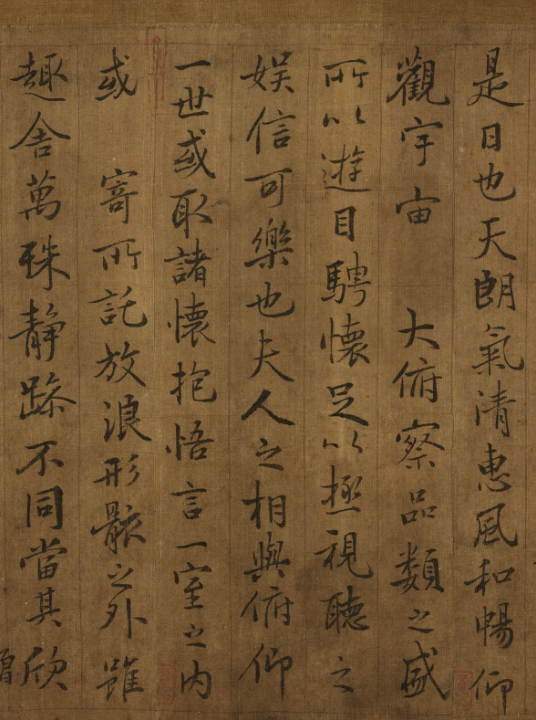 是日也天朗氣清惠風和暢仰
觀宇宙 大俯察品類之盛
所以遊目騁懷足以極視聽之
娛信可樂也夫人之相與俯仰
一世或取諸懷抱悟言一室之内
或 寄所託放浪形骸之外雖
趣舍萬殊静躁不同當其欣